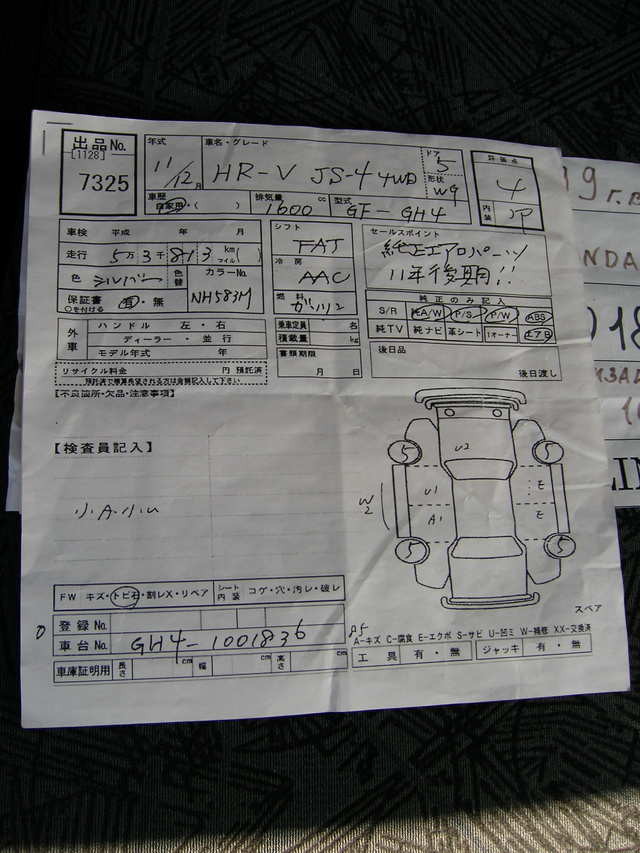 出品No.
[1128]
7325
年式
11/12月
車名・グレード
HR-V JS-4 4WD
ドア
5
形状
WG
評価点
4
内装
車歴
自家用・( )
排気量
1600 cc
型式
GF-GH4
車検 平成 年 月
走行 5万3千813 km( マイル )
色 シルバー
色替
カラーNo.
NH583M
保証書 有・無
○を付ける
シフト
FAT
冷房
AAC
燃料
ガソリン
セールスポイント
純正エアロパーツ
11年後期!!
純正のみ記入
S/R A/W P/S P/W ABS
純TV 純ナビ 革シート 1オーナー エアB
外車
ハンドル 左・右
ディーラー・並行
モデル年式 年
乗車定員 名
積載量 kg
書類期限
月 日
後日品
後日渡し
リサイクル料金 円 預託済
預託済で精算希望される方は金額記入して下さい
【不良箇所・欠品・注意事項】
【検査員記入】
小A小U
U2
5 5
U1 E
W2
A1 E
5 5
スペア
FW キズ・トビ石・割レX・リペア
シート内装 コゲ・穴・汚レ・破レ
登録No.
車台No. GH4-1001836
車庫証明用 長さ cm 幅 cm 高さ cm
A-キズ C-腐食 E-エクボ S-サビ U-凹ミ W-補修 XX-交換済
工具 有・無 ジャッキ 有・無
9 г.в
NDA
18